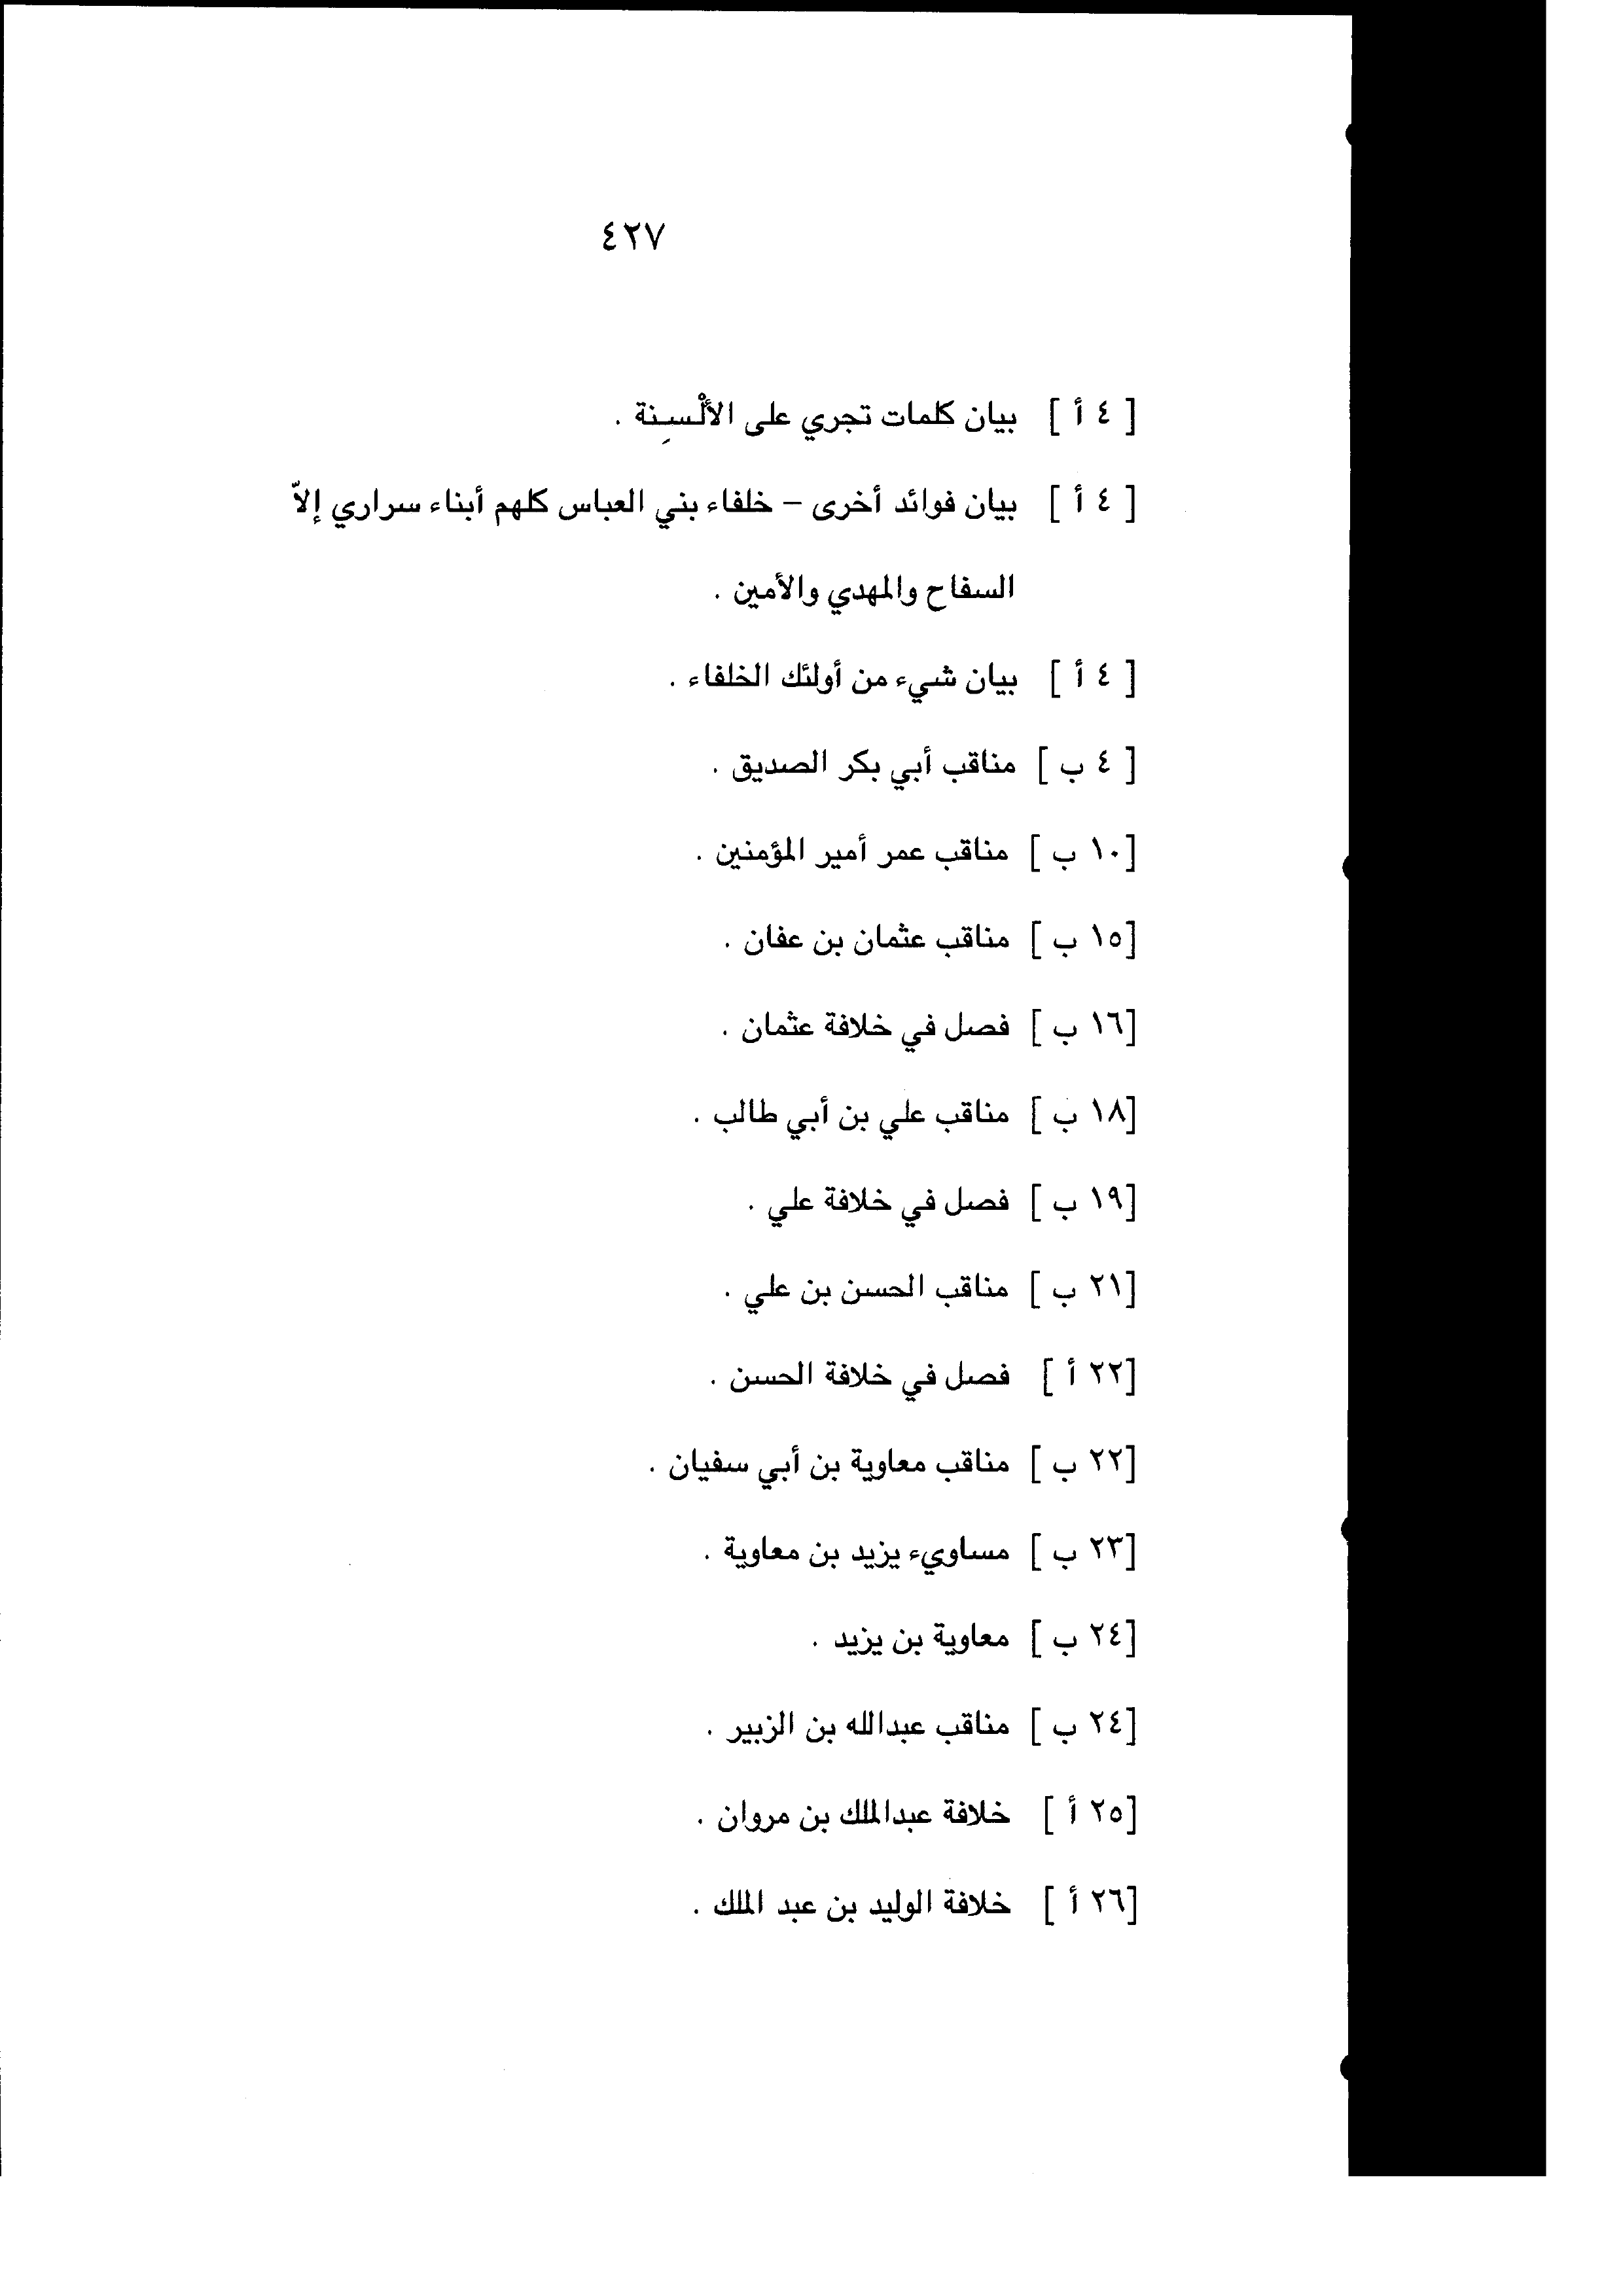 ٤٢٧
[ ٤ أ ] بيان كلمات تجري على الألْسِنة .
[ ٤ أ ] بيان فوائد أخرى – خلفاء بني العباس كلهم أبناء سراري إلاّ
السفاح والمهدي والأمين .
[ ٤ أ ] بيان شيء من أولئك الخلفاء .
[ ٤ ب ] مناقب أبي بكر الصديق .
[١٠ ب ] مناقب عمر أمير المؤمنين .
[١٥ ب ] مناقب عثمان بن عفان .
[١٦ ب ] فصل في خلافة عثمان .
[١٨ ب ] مناقب علي بن أبي طالب .
[١٩ ب ] فصل في خلافة علي .
[٢١ ب ] مناقب الحسن بن علي .
[٢٢ أ ] فصل في خلافة الحسن .
[٢٢ ب ] مناقب معاوية بن أبي سفيان .
[٢٣ ب ] مساويء يزيد بن معاوية .
[٢٤ ب ] معاوية بن يزيد .
[٢٤ ب ] مناقب عبدالله بن الزبير .
[٢٥ أ ] خلافة عبدالملك بن مروان .
[٢٦ أ ] خلافة الوليد بن عبد الملك .